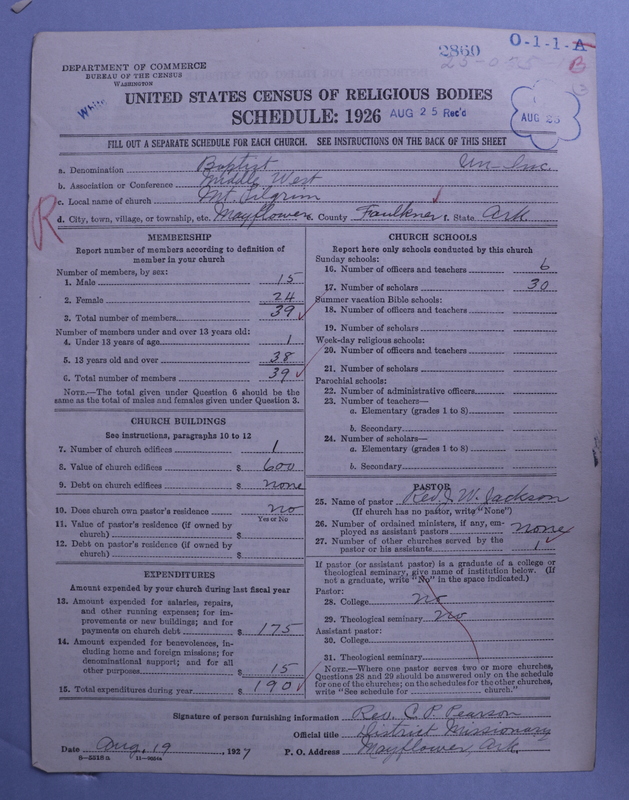 2860
O-1-1-A
B
DEPARTMENT OF COMMERCE
BUREAU OF THE CENSUS
WASHINGTON
UNITED STATES CENSUS OF RELIGIOUS BODIES
SCHEDULE: 1926
AUG 25 Rec'd
AUG 26
FILL OUT A SEPARATE SCHEDULE FOR EACH CHURCH. SEE INSTRUCTIONS ON THE BACK OF THIS SHEET
a. Denomination Baptist Un-Inc.
b. Association or Conference Middle West
c. Local name of church Mt. Pilgrim
d. City, town, village, or township, etc. Mayflower e. County Faulkner f. State Ark
R
MEMBERSHIP
Report number of members according to definition of
member in your church
Number of members, by sex:
1. Male 15
2. Female 24
3. Total number of members 39
Number of members under and over 13 years old:
4. Under 13 years of age 1
5. 13 years old and over 38
6. Total number of members 39
NOTE.—The total given under Question 6 should be the
same as the total of males and females given under Question 3.
CHURCH BUILDINGS
See instructions, paragraphs 10 to 12
7. Number of church edifices 1
8. Value of church edifices $ 600
9. Debt on church edifices $ none
10. Does church own pastor's residence no
Yes or No
11. Value of pastor's residence (if owned by
church) $
12. Debt on pastor's residence (if owned by
church) $
EXPENDITURES
Amount expended by your church during last fiscal year
13. Amount expended for salaries, repairs,
and other running expenses; for im-
provements or new buildings; and for
payments on church debt $ 175
14. Amount expended for benevolences, in-
cluding home and foreign missions; for
denominational support; and for all
other purposes $ 15
15. Total expenditures during year $ 190
CHURCH SCHOOLS
Report here only schools conducted by this church
Sunday schools:
16. Number of officers and teachers 6
17. Number of scholars 30
Summer vacation Bible schools:
18. Number of officers and teachers
19. Number of scholars
Week-day religious schools:
20. Number of officers and teachers
21. Number of scholars
Parochial schools:
22. Number of administrative officers
23. Number of teachers—
a. Elementary (grades 1 to 8)
b. Secondary
24. Number of scholars—
a. Elementary (grades 1 to 8)
b. Secondary
PASTOR
25. Name of pastor Rev. J. W. Jackson
(If church has no pastor, write "None")
26. Number of ordained ministers, if any, em-
ployed as assistant pastors none
27. Number of other churches served by the
pastor or his assistants 1
If pastor (or assistant pastor) is a graduate of a college or
theological seminary, give name of institution below. (If
not a graduate, write "No" in the space indicated.)
Pastor:
28. College no
29. Theological seminary no
Assistant pastor:
30. College
31. Theological seminary
NOTE.—Where one pastor serves two or more churches,
Questions 28 and 29 should be answered only on the schedule
for one of the churches; on the schedules for the other churches,
write "See schedule for church."
Signature of person furnishing information Rev. C. P. Pearson
Official title District Missionary
Date Aug. 19, 1927 P. O. Address Mayflower, Ark.
8-5518 a